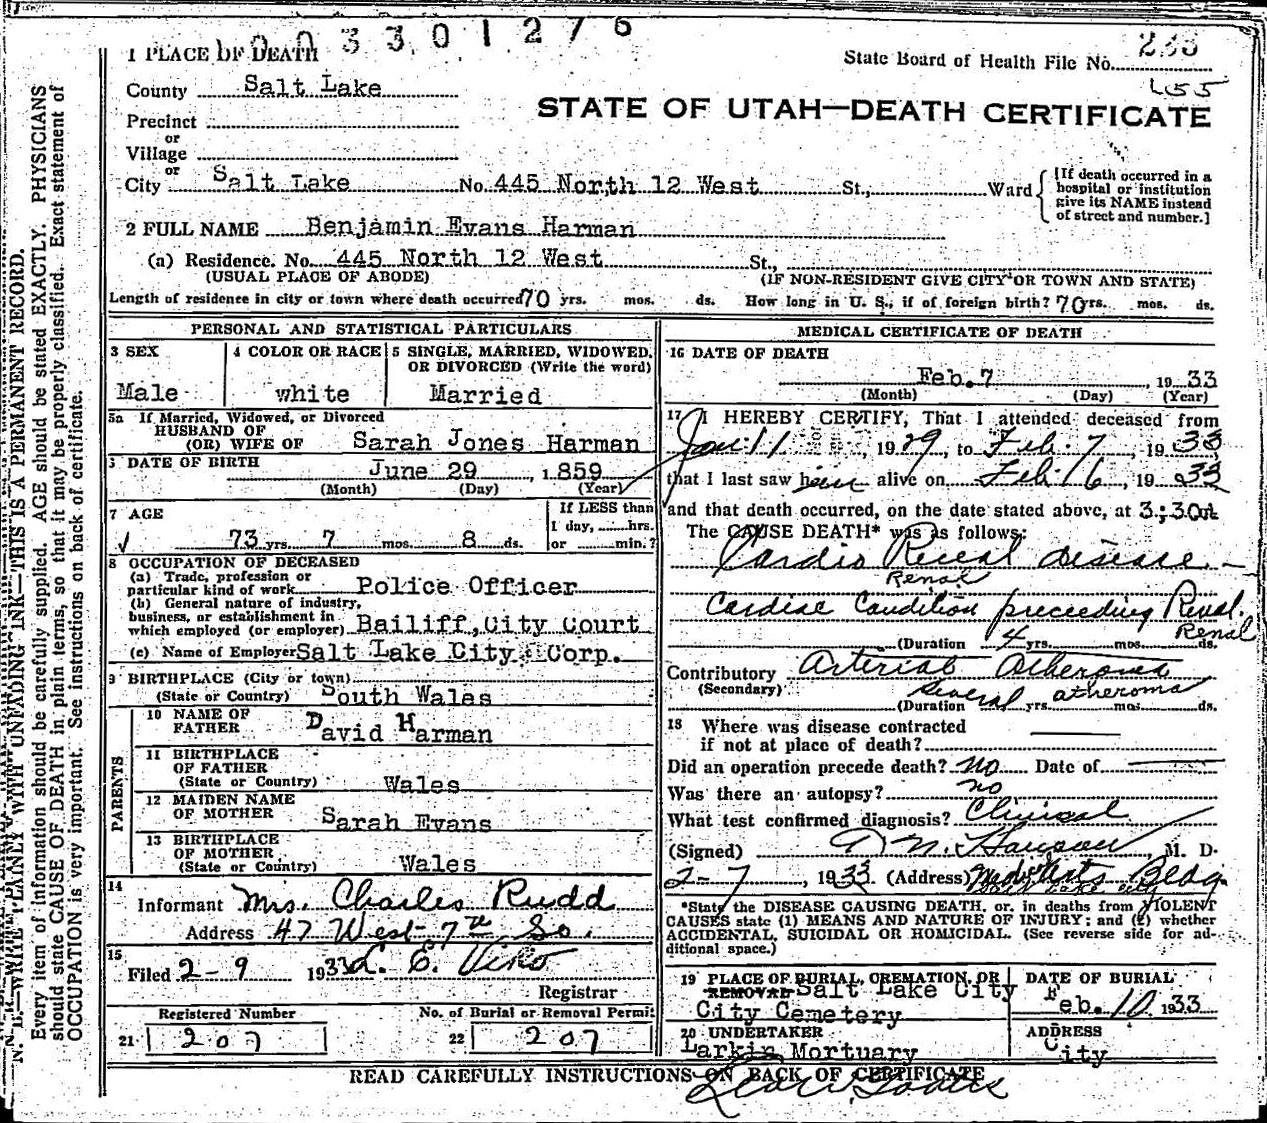 1003301276
1 PLACE OF DEATH
State Board of Health File No. 233
L55
County Salt Lake
STATE OF UTAH—DEATH CERTIFICATE
Precinct
or
Village
or
City Salt Lake No. 445 North 12 West St., Ward
[If death occurred in a
hospital or institution
give its NAME instead
of street and number.]
2 FULL NAME Benjamin Evans Harman
(a) Residence. No. 445 North 12 West St.,
(USUAL PLACE OF ABODE) (IF NON-RESIDENT GIVE CITY OR TOWN AND STATE)
Length of residence in city or town where death occurred 70 yrs. mos. ds. How long in U. S., if of foreign birth? 70 yrs. mos. ds.
PERSONAL AND STATISTICAL PARTICULARS
3 SEX
Male
4 COLOR OR RACE
white
5 SINGLE, MARRIED, WIDOWED,
OR DIVORCED (Write the word)
Married
5a If Married, Widowed, or Divorced
HUSBAND OF
(OR) WIFE OF Sarah Jones Harman
6 DATE OF BIRTH
June 29, 1859
(Month) (Day) (Year)
7 AGE
73 yrs. 7 mos. 8 ds.
If LESS than
1 day, hrs.
or min.?
8 OCCUPATION OF DECEASED
(a) Trade, profession or
particular kind of work Police Officer
(b) General nature of industry,
business, or establishment in
which employed (or employer) Bailiff, City Court
(c) Name of Employer Salt Lake City Corp.
9 BIRTHPLACE (City or town)
(State or Country) South Wales
PARENTS
10 NAME OF
FATHER David Harman
11 BIRTHPLACE
OF FATHER
(State or Country) Wales
12 MAIDEN NAME
OF MOTHER Sarah Evans
13 BIRTHPLACE
OF MOTHER
(State or Country) Wales
14
Informant Mrs. Charles Rudd
Address 47 West 7th So.
15
Filed 2-9 1933 L. E. Viko
Registrar
Registered Number
21 207
No. of Burial or Removal Permit
22 207
MEDICAL CERTIFICATE OF DEATH
16 DATE OF DEATH
Feb. 7, 1933
(Month) (Day) (Year)
17 I HEREBY CERTIFY, That I attended deceased from
Jan. 11, 1929, to Feb. 7, 1933
that I last saw him alive on Feb. 6, 1933
and that death occurred, on the date stated above, at 3:30
The CAUSE DEATH* was as follows:
Cardio Renal disease —
Renal
Cardiac Condition preceeding Renal.
Renal
(Duration 4 yrs. mos. ds.
Contributory Arterial Atheroma
(Secondary) several atheroma
(Duration yrs. mos. ds.
18 Where was disease contracted
if not at place of death?
Did an operation precede death? No Date of
Was there an autopsy? no
What test confirmed diagnosis? Clinical
(Signed) N. Hanson, M. D.
2-7, 1933 (Address) Med. Arts Bldg.
Salt Lake City
*State the DISEASE CAUSING DEATH, or, in deaths from VIOLENT
CAUSES state (1) MEANS AND NATURE OF INJURY; and (2) whether
ACCIDENTAL, SUICIDAL OR HOMICIDAL. (See reverse side for ad-
ditional space.)
19 PLACE OF BURIAL, CREMATION, OR
REMOVAL Salt Lake City
City Cemetery
DATE OF BURIAL
Feb. 10, 1933
20 UNDERTAKER
Larkin Mortuary
ADDRESS
City
READ CAREFULLY INSTRUCTIONS ON BACK OF CERTIFICATE
N. B.—WRITE PLAINLY WITH UNFADING INK—THIS IS A PERMANENT RECORD.
Every item of information should be carefully supplied. AGE should be stated EXACTLY. PHYSICIANS
should state CAUSE OF DEATH in plain terms, so that it may be properly classified. Exact statement of
OCCUPATION is very important. See instructions on back of certificate.